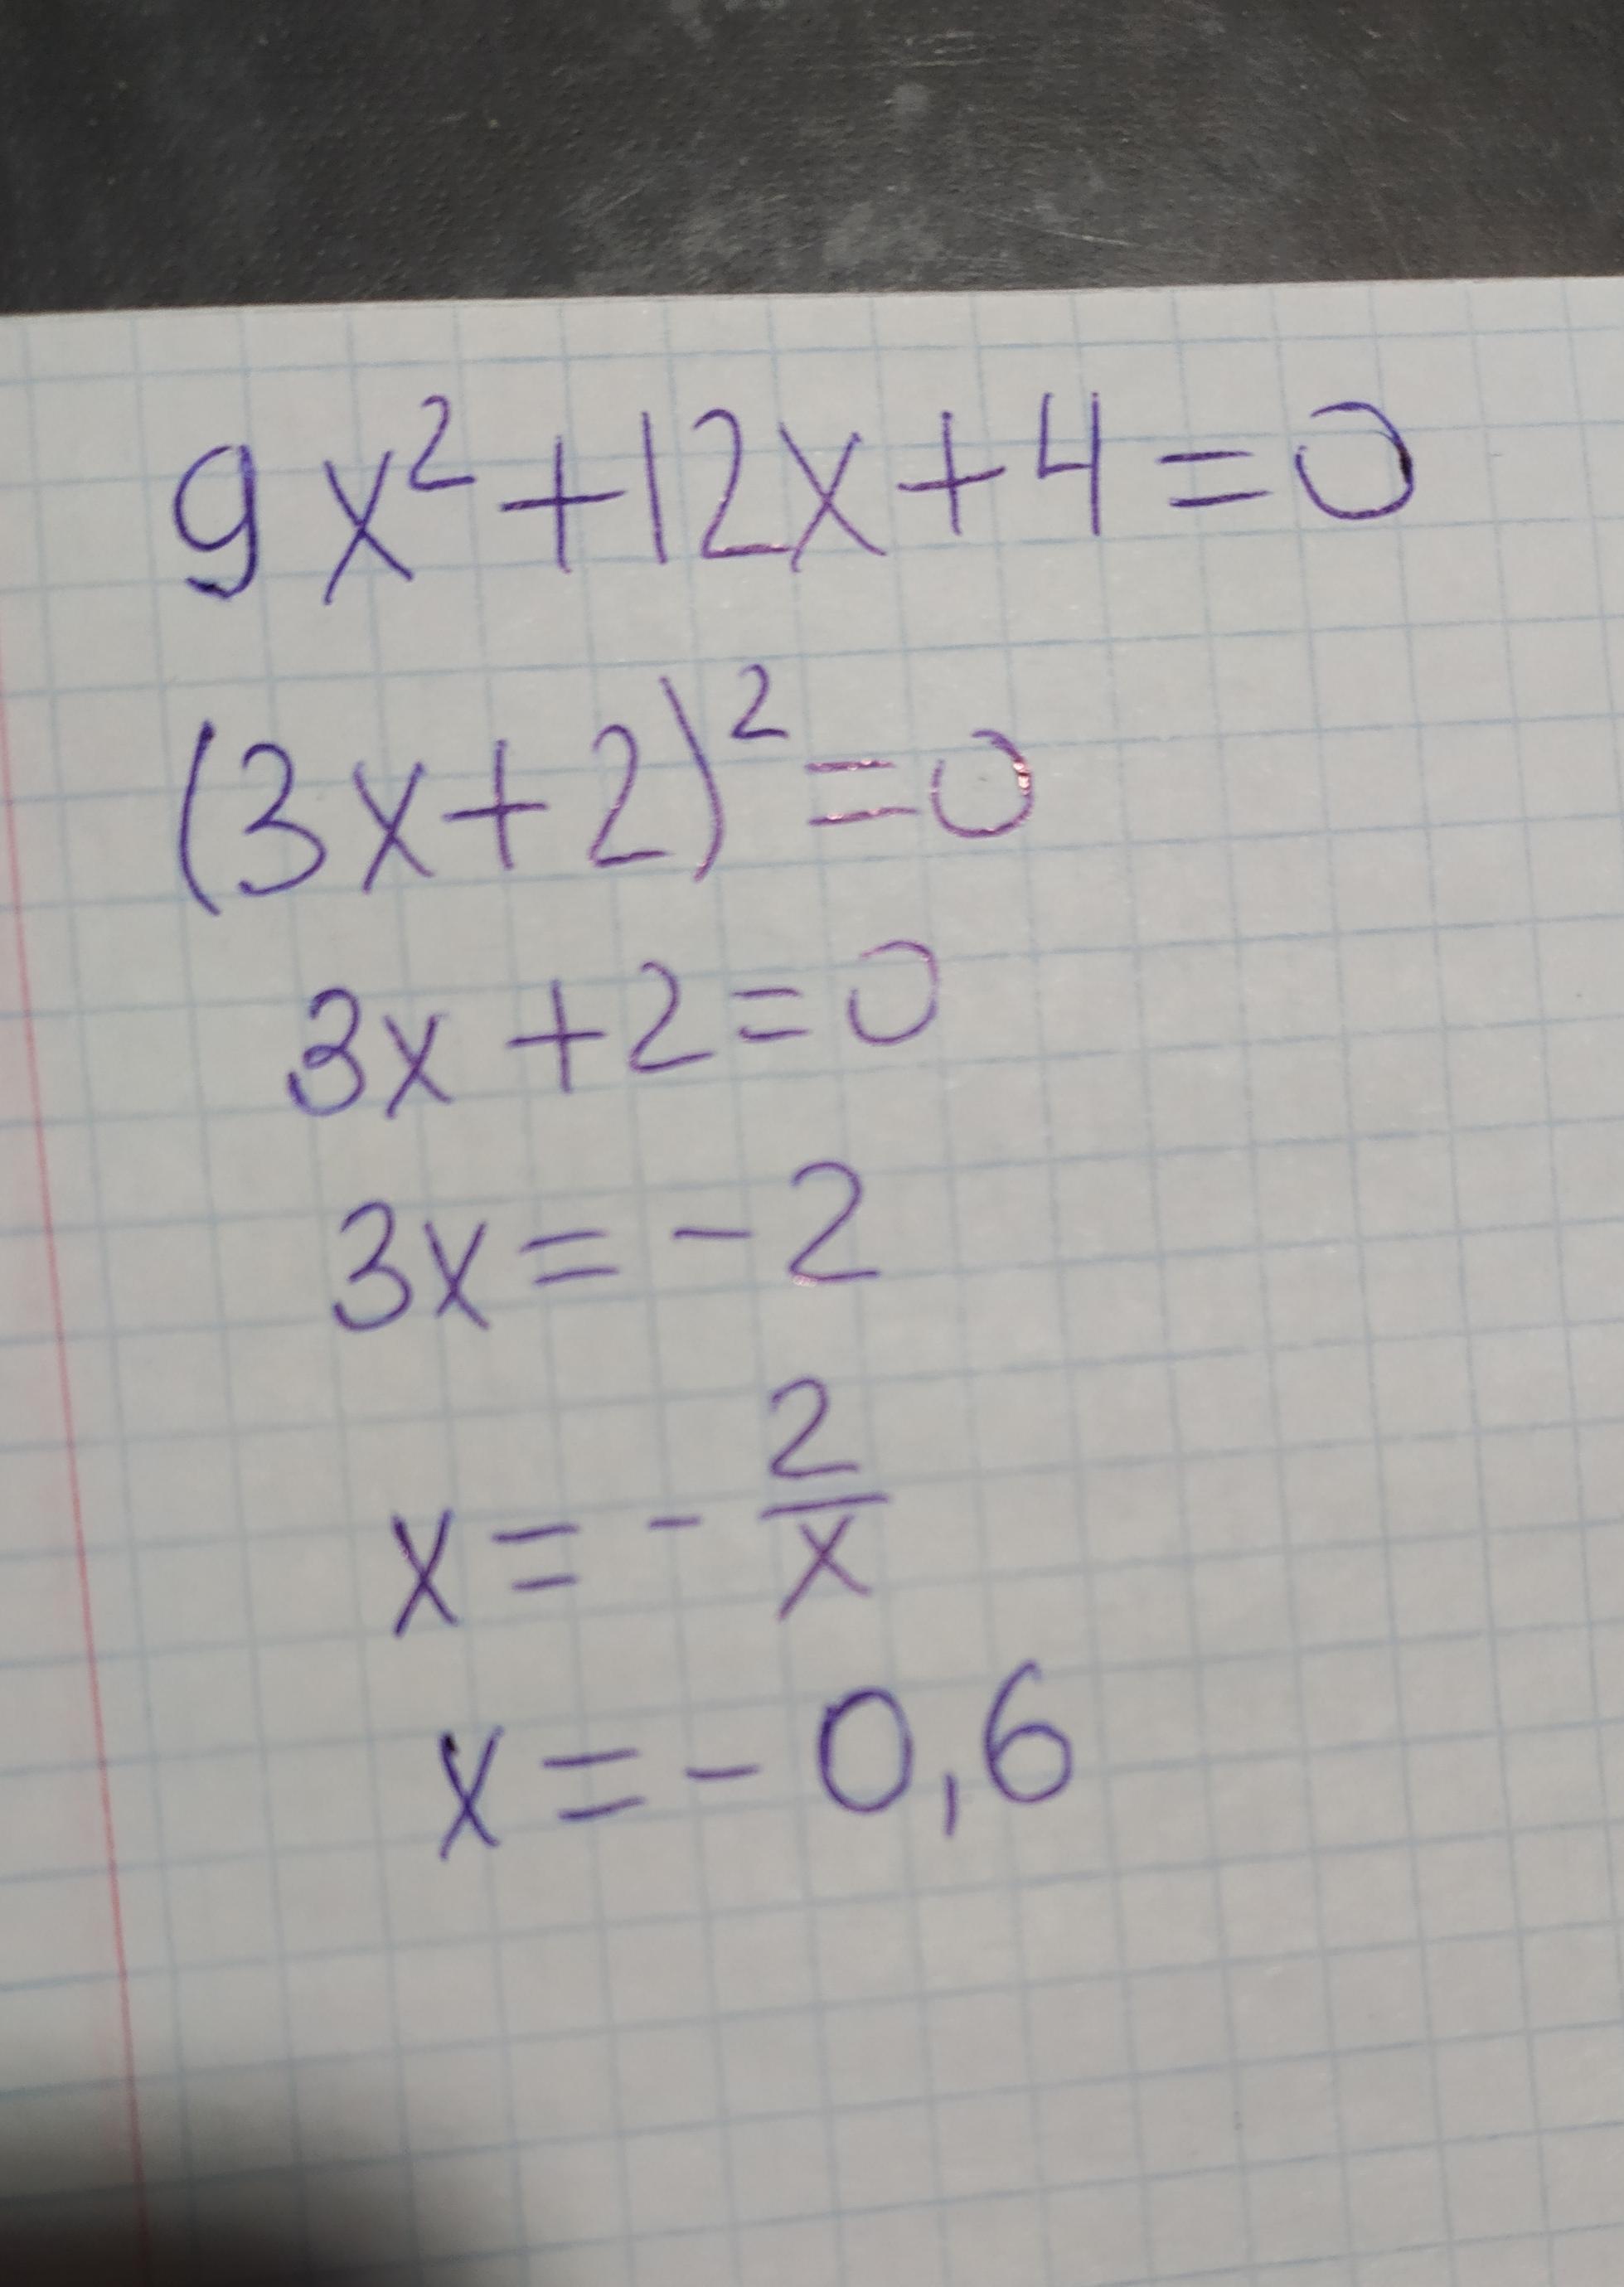 9x²+12x+4=0
(3x+2)²=0
3x+2=0
3x=-2
x=-2/x
x=-0,6